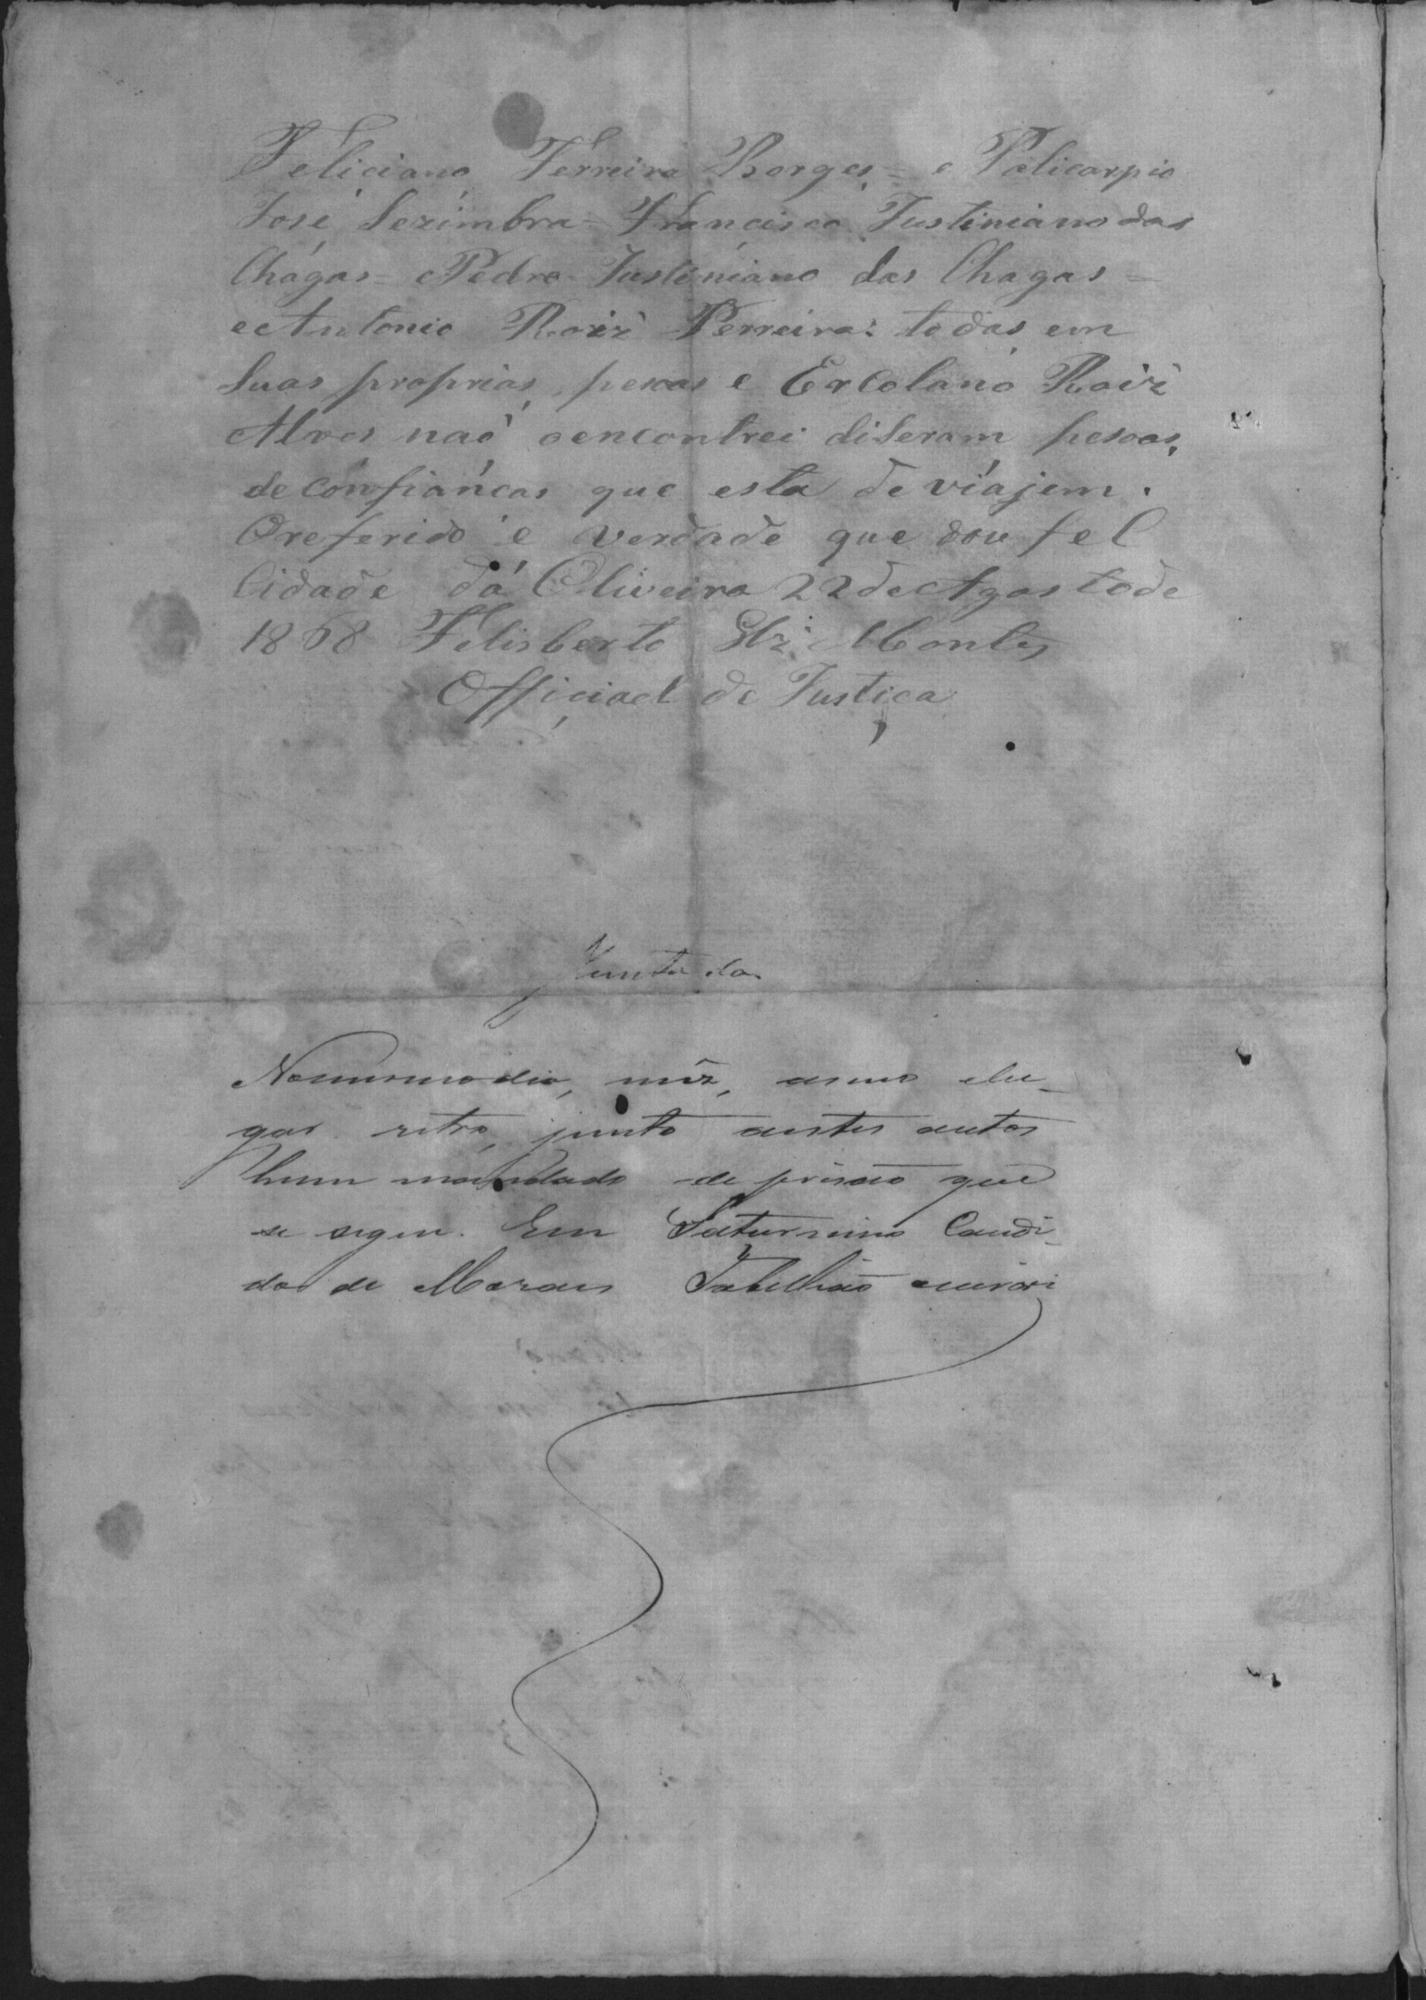 Feliciano Ferreira Borges = e Policarpio
José Sezimbra = Francisco Justiniano das
Chagas = Pedro Justiniano das Chagas =
e Antonio Roiz Perreira: todas em
Suas proprias pesoas e Ercolano Roiz
Alves naõ o encontrei diseram pesoas,
de confiancas que esta de viájem.
O referido é verdade que dou fel
Cidade dá Oliveira 22 de Agosto de
1868 Felisberto Montes
Officiael de Justiça
Juntada
No mesmo dia, mêz, anno elu-
gar retro, junto aestes autos
hum mandado de prisaõ que
se segue. Eu Saturnino Candi-
do de Moraes Tabelliaõ escrevi